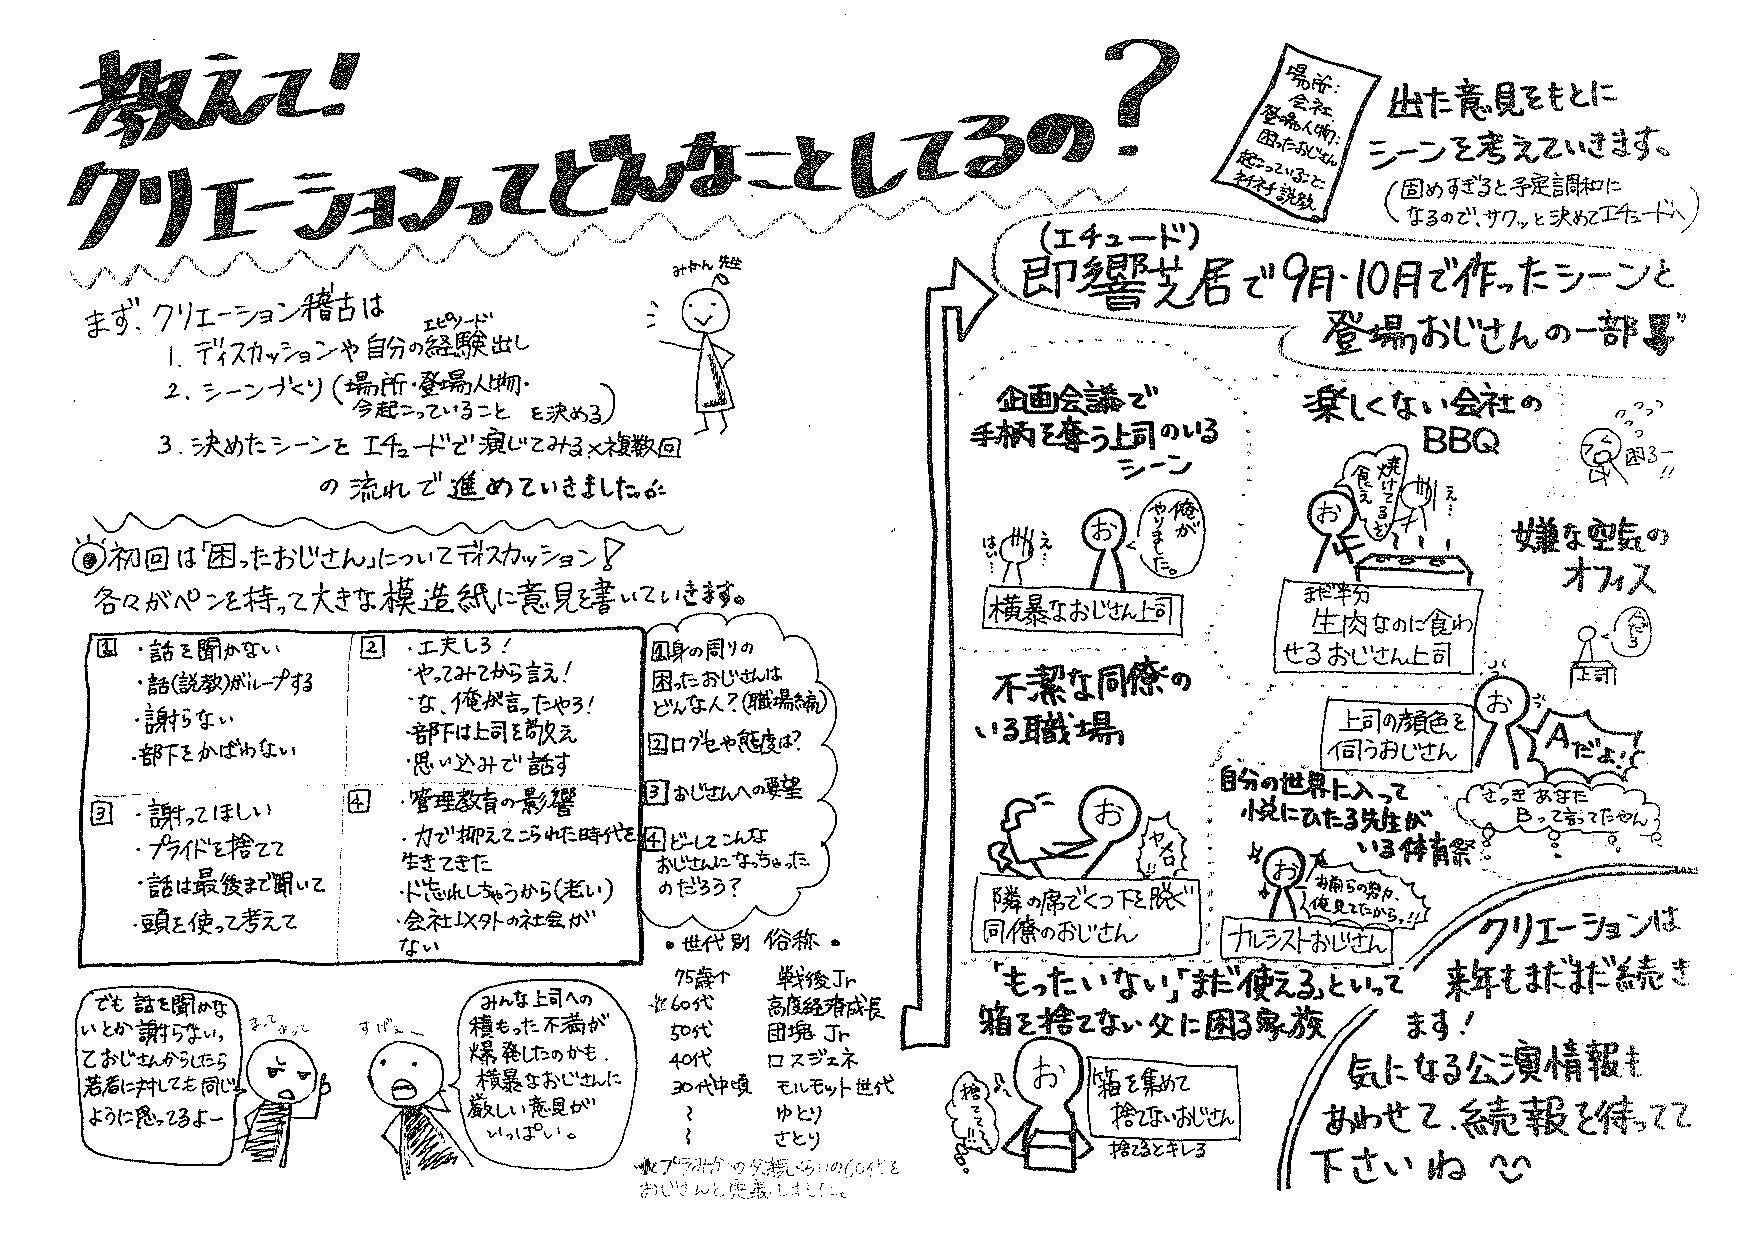 教えて!
クリエーションってどんなことしてるの?
みかん先生
まず、クリエーション稽古は
1. ディスカッションや自分の経験出し
エピソード
2. シーンづくり(場所・登場人物・
今起こっていること を決める)
3. 決めたシーンとエチュードで演じてみる×複数回
の流れで進めていきました。
初回は「困ったおじさん」についてディスカッション!
各々がペンを持って大きな模造紙に意見を書いていきます。
1
・話を聞かない
・話(説教)がループする
・謝らない
・部下をかばわない
2
・工夫しろ!
・やってみてから言え!
・な、俺が言ったやろ!
・部下は上司を敬え
・思い込みで話す
3
・謝ってほしい
・プライドを捨てて
・話は最後まで聞いて
・頭を使って考えて
4
・管理教育の影響
・力で抑えてこられた時代を
生きてきた
・ド忘れしちゃうから(老い)
・会社以外の社会が
ない
1 身の周りの
困ったおじさんは
どんな人?(職場編)
2 口グセや態度は?
3 おじさんへの要望
4 どーしてこんな
おじさんになっちゃった
のだろう?
でも話を聞かな
いとか謝らないっ
ておじさんからしたら
若者に対しても同じ
ように思ってるよー
まってまって
すげぇー
みんな上司への
積もった不満が
爆発したのかも。
横暴なおじさんに
厳しい意見が
いっぱい。
・世代別 俗称・
75歳↑ 戦後Jr
※60代 高度経済成長
50代 団塊Jr
40代 ロスジェネ
30代中頃 モルモット世代
〜 ゆとり
〜 さとり
おじさんと定義しました。
場所:
会社
登場人物:
困ったおじさん
起こっていること:
ネチネチ説教。
出た意見をもとに
シーンを考えていきます。
(固めすぎると予定調和に
なるので、サクッと決めてエチュードへ)
(エチュード)
即響芝居で9月・10月で作ったシーンと
登場おじさんの一部
企画会議で
手柄を奪う上司のいる
シーン
はい…
え…
お
俺が
やりました。
横暴なおじさん上司
楽しくない会社の
BBQ
お
焼けてるぞ
食え
え…
まだ半分
生肉なのに食わ
せるおじさん上司
困るー
!!
嫌な空気の
オフィス
上司
上司の顔色を
伺うおじさん
お
Aだよ!
さっきあなた
Bって言ってたやん
不潔な同僚の
いる職場
お
ヤメロ
隣の席でくつ下を脱ぐ
同僚のおじさん
自分の世界に入って
小悦にひたる先生が
いる体育祭
お
お前らの努力、
俺見てたからっ!!
ナルシストおじさん
「もったいない」「まだ使える」といって
箱を捨てない父に困る家族
お
捨てて…
箱を集めて
捨てないおじさん
捨てるとキレる
クリエーションは
来年もまだまだ続き
ます!
気になる公演情報も
あわせて、続報を待ってて
下さいね